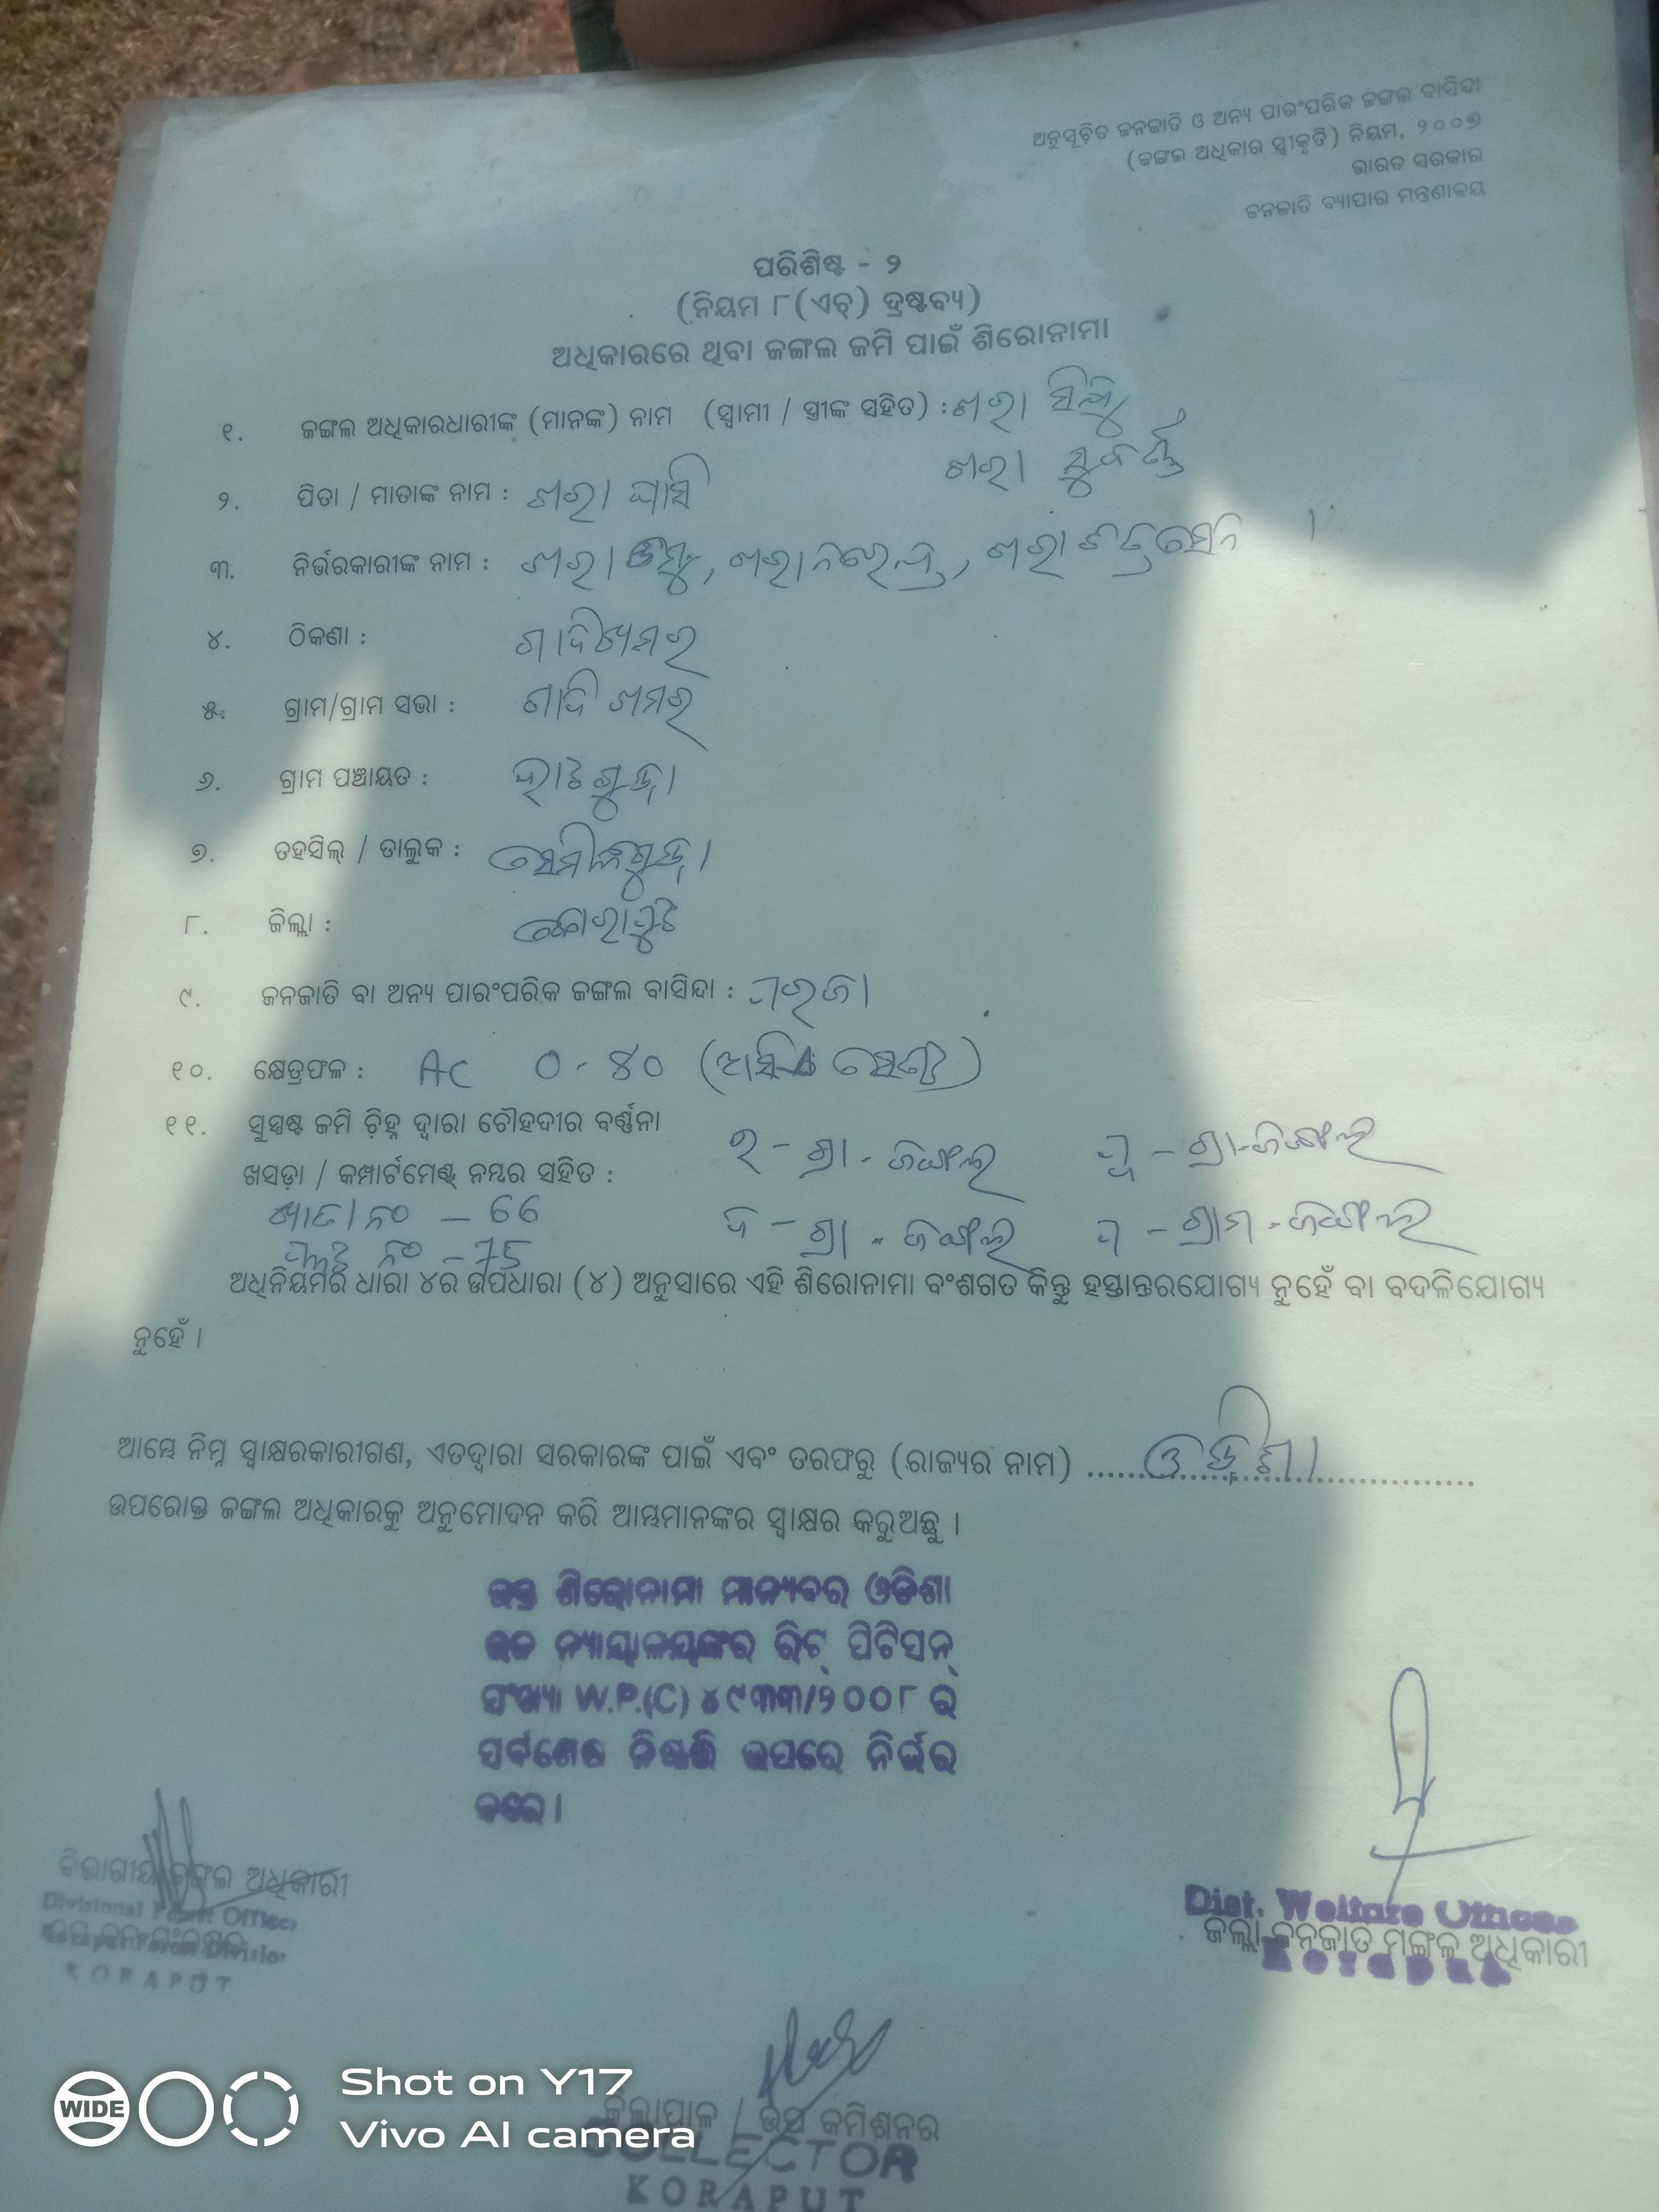 ଅନୁସୂଚିତ ଜନଜାତି ଓ ଅନ୍ୟ ପାରଂପରିକ ଜଙ୍ଗଲ ବାସିନ୍ଦା
(ଜଙ୍ଗଲ ଅଧିକାର ସ୍ୱୀକୃତି) ନିୟମ, ୨୦୦୭
ଭାରତ ସରକାର
ଜନଜାତି ବ୍ୟାପାର ମନ୍ତ୍ରଣାଳୟ
ପରିଶିଷ୍ଟ - ୨
(ନିୟମ ୮(ଏଚ୍) ଦ୍ରଷ୍ଟବ୍ୟ)
ଅଧିକାରରେ ଥିବା ଜଙ୍ଗଲ ଜମି ପାଇଁ ଶିରୋନାମା
୧. ଜଙ୍ଗଲ ଅଧିକାରଧାରୀଙ୍କ (ମାନଙ୍କ) ନାମ (ସ୍ୱାମୀ / ସ୍ତ୍ରୀଙ୍କ ସହିତ) : ଖରା
ଖରା ସୁବର୍ଣ୍ଣ
୨. ପିତା / ମାତାଙ୍କ ନାମ : ଖରା ଘାସି
୩. ନିର୍ଭରକାରୀଙ୍କ ନାମ : ଖରା ଖରା ନରେନ୍ଦ୍ର, ଖରା
୪. ଠିକଣା : ଗାଦିଖମର
୫. ଗ୍ରାମ/ଗ୍ରାମ ସଭା : ଗାଦି ଖମର
୬. ଗ୍ରାମ ପଞ୍ଚାୟତ : ହାଟଗୁଡ଼ା
୭. ତହସିଲ୍ / ତାଲୁକ : ସେମିଳିଗୁଡ଼ା
୮. ଜିଲ୍ଲା : କୋରାପୁଟ
୯. ଜନଜାତି ବା ଅନ୍ୟ ପାରଂପରିକ ଜଙ୍ଗଲ ବାସିନ୍ଦା : ପରଜା
୧୦. କ୍ଷେତ୍ରଫଳ : AC ୦-୪୦
୧୧. ସୁସ୍ପଷ୍ଟ ଜମି ଚିହ୍ନ ଦ୍ୱାରା ଚୌହଦୀର ବର୍ଣ୍ଣନା
ଉ - ଗ୍ରା - ଜଙ୍ଗଲ ପୂ - ଗ୍ରା-ଜଙ୍ଗଲ
ଖସଡ଼ା / କମ୍ପାର୍ଟମେଣ୍ଟ୍ ନମ୍ବର ସହିତ :
ଖାତା ନଂ - 66 ଦ - ଗ୍ରା - ଜଙ୍ଗଲ ପ - ଗ୍ରାମ - ଜଙ୍ଗଲ
ପ୍ଲଟ ନଂ - 75
ଅଧିନିୟମର ଧାରା ୪ର ଉପଧାରା (୪) ଅନୁସାରେ ଏହି ଶିରୋନାମା ବଂଶଗତ କିନ୍ତୁ ହସ୍ତାନ୍ତରଯୋଗ୍ୟ ନୁହେଁ ବା ବଦଳିଯୋଗ୍ୟ
ନୁହେଁ ।
ଆମ୍ଭେ ନିମ୍ନ ସ୍ୱାକ୍ଷରକାରୀଗଣ, ଏତଦ୍ୱାରା ସରକାରଙ୍କ ପାଇଁ ଏବଂ ତରଫରୁ (ରାଜ୍ୟର ନାମ) ......ଓଡ଼ିଶା......
ଉପରୋକ୍ତ ଜଙ୍ଗଲ ଅଧିକାରକୁ ଅନୁମୋଦନ କରି ଆମ୍ଭମାନଙ୍କର ସ୍ୱାକ୍ଷର କରୁଅଛୁ ।
ଉକ୍ତ ଶିରୋନାମା ମାନ୍ୟବର ଓଡିଶା
ଉଚ୍ଚ ନ୍ୟାୟାଳୟଙ୍କର ରିଟ୍ ପିଟିସନ୍
ସଂଖ୍ୟା W.P.(C) ୪୯୩୩/୨୦୦୮ ର
ସର୍ବଶେଷ ନିଷ୍ପତ୍ତି ଉପରେ ନିର୍ଭର
କରେ ।
ବିଭାଗୀୟ ଜଙ୍ଗଲ ଅଧିକାରୀ
Divisional Forest Officer
Koraput Forest Division
KORAPUT
Dist. Welfare Officer
ଜିଲ୍ଲା ଜନଜାତି ମଙ୍ଗଳ ଅଧିକାରୀ
Koraput
ଜିଲ୍ଲାପାଳ / ଉପ କମିଶନର
COLLECTOR
KORAPUT
WIDE
Shot on Y17
Vivo AI camera